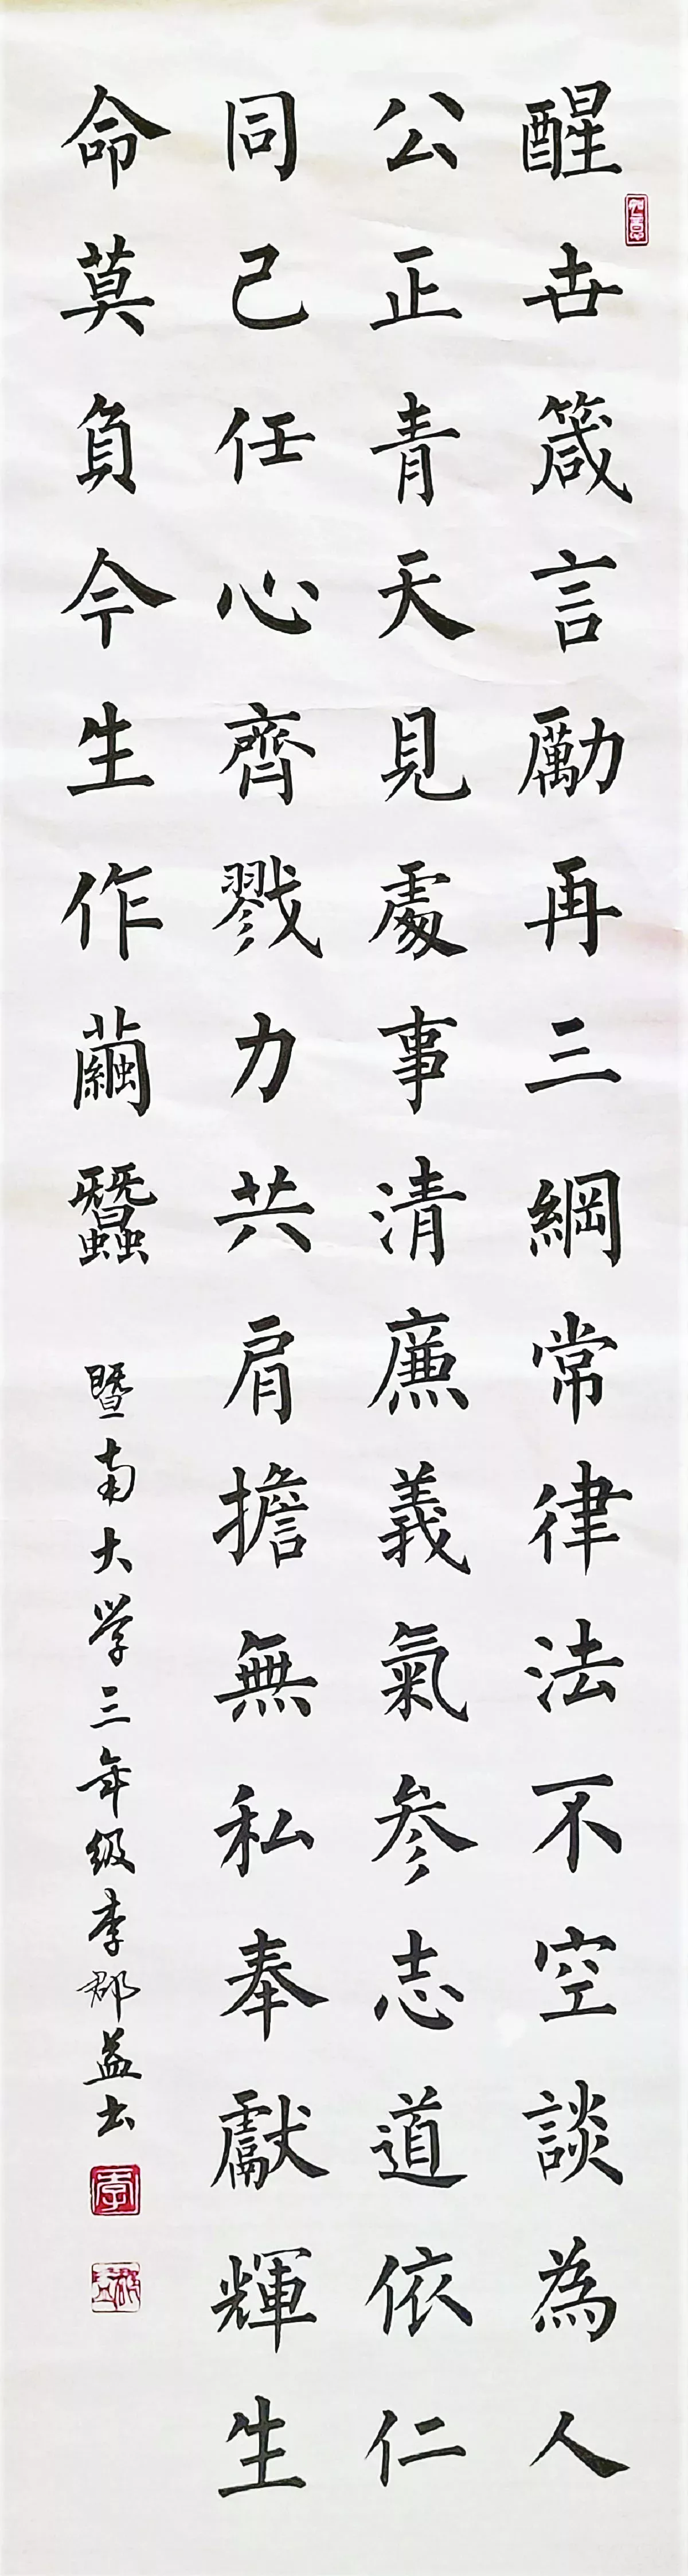 醒世箴言勵再三綱常律法不空談為人
公正青天見處事清廉義氣參志道依仁
同己任心齊戮力共肩擔無私奉獻輝生
命莫負今生作繭蠶
暨南大学三年级李郡益书